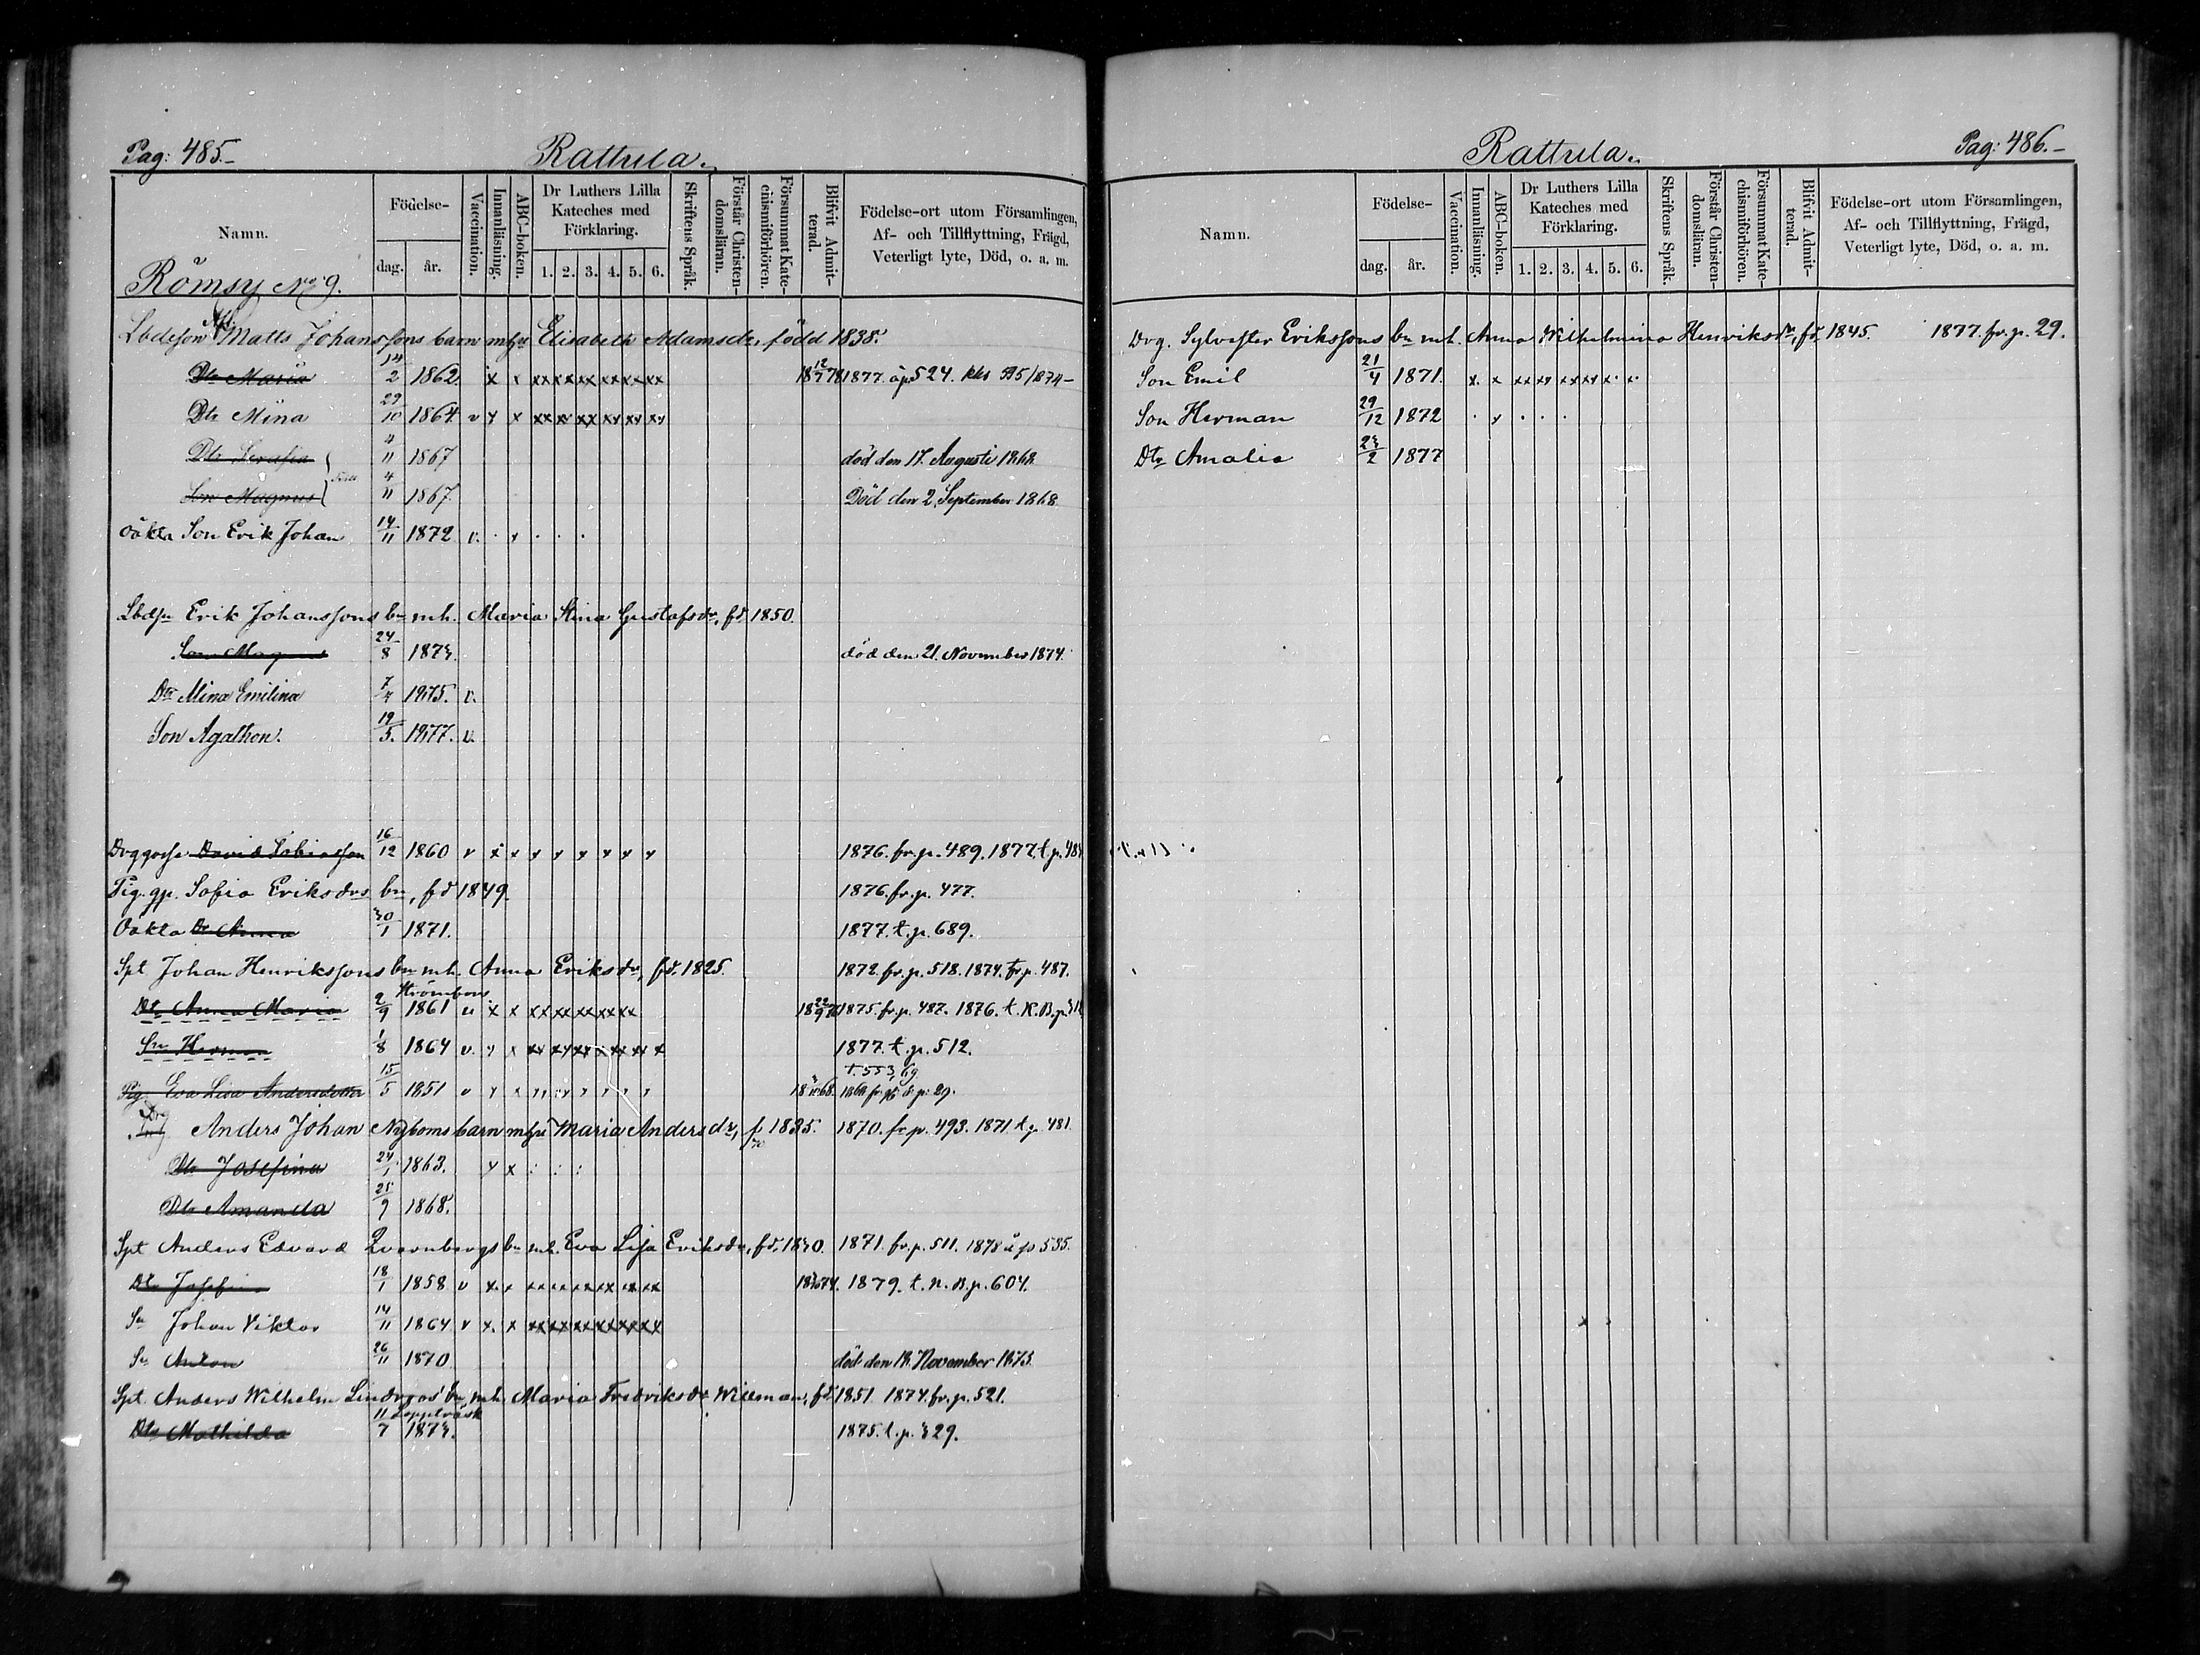 Pag: 485.
Rattula.
Namn.
Födelse-
dag.
år.
Vaccination.
Innanläsning.
ABC-boken.
Dr Luthers Lilla Kateches med Förklaring.
1. 2. 3. 4. 5. 6.
Skriftens Språk.
Förstår Christendomsläran.
Försummat Katechismiförhören.
Blifvit Admitterad.
Födelse-ort utom Församlingen, Af- och Tillflyttning, Frägd, Veterligt lyte, Död, o. a. m.
Römsy No 9.
Matts Johanssons barn m hu Elisabeth Adamsdr, född 1838.
Dtr Maria 14/2 1862 1877 å p 524.
Dtr Mina 29/10 1864 v
Dtr Serafia 4/11 1867 död den 17. Augusti 1868
Son Magnus 4/11 1867. Död den 2 September 1868
Oäkta Son Erik Johan 14/11 1872 v.
Erik Johanssons bn m h. Maria Stina Gustafsdr, fd 1850.
Son Magnus 24/8 1873. död den 21. November 1874.
Dtr Mina Emilina 7/4 1875. v.
Son Agathon. 19/5. 1877. v.
David Tobiasson 16/12 1860 v 1876. fr. p. 489. 1877. t. p.
Pig. gp. Sofia Eriksdrs bn, fd 1849. 1876. fr. p. 477.
Oäkta Dr Anna 30/1 1871. 1877. t. p. 689.
Spt Johan Henrikssons bn m h. Anna Eriksdr, fd. 1825. 1872. fr. p. 518. 1874. fr p. 487.
Dtr Anna Maria 2/9 1861 1875. fr. p. 487. 1876. t. N. B. p.
Sn Herman 1/8 1864 v. 1877. t. p. 512.
t. 553, 69
Pig. Eva Lisa Andersdotter 15/5 1851 v
Anders Johan Nyboms barn m hu Maria Andersdr, f 1835. 1870. fr p. 493. 1871 t p. 481
Dtr Josefina 24/1 1863.
Dtr Amanda 25/9 1868.
Spt Anders Edvard Qvarnbergs bn m h. Eva Lisa Eriksdr, fd. 1830. 1871. fr. p. 511. 1878 å p 535.
Dtr Josefina 18/1 1858 v 1879. t. N. B. p. 604.
Sn Johan Viktor 14/11 1864 v
Sn Anton 26/11 1870 död den 18. November 1873.
Spt. Anders Wilhelm Lindroos' bn m h. Maria Fredriksdr Willman, fd 1851 1874. fr. p. 521.
Dtr Mathilda 11/7 1873. 1875. t. p. 329.
Rattula.
Pag: 486.
Namn.
Födelse-
dag.
år.
Vaccination.
Innanläsning.
ABC-boken.
Dr Luthers Lilla Kateches med Förklaring.
1. 2. 3. 4. 5. 6.
Skriftens Språk.
Förstår Christendomsläran.
Försummat Katechismiförhören.
Blifvit Admitterad.
Födelse-ort utom Församlingen, Af- och Tillflyttning, Frägd, Veterligt lyte, Död, o. a. m.
Drg. Sylvester Erikssons bn m h. Anna Wilhelmina Henriksdr, fd 1845. 1877. fr. p. 29.
Son Emil 21/4 1871.
Son Herman 29/12 1872
Dtr Amalia 23/2 1877